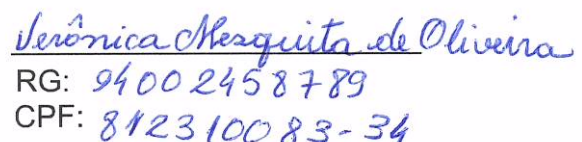 Verônica Mesquita de Oliveira
RG: 94002458789
CPF: 812310083-34